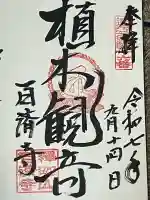 奉拝
令和七年
月十四日
植木観音
百済寺